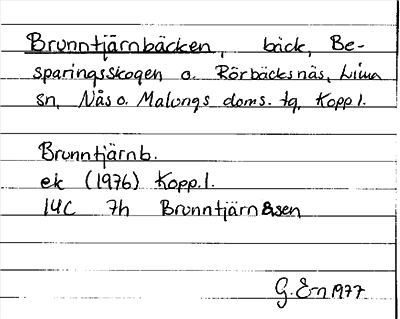 Brunntjärnbäcken, bäck, Be-
sparingsskogen o. Rörbäcksnäs, Lima
sn, Nås o. Malungs doms. tg, Kopp l.
Brunntjärnb.
ek (1976) Kopp.l.
14C 7h Brunntjärnåsen
G. En 1977